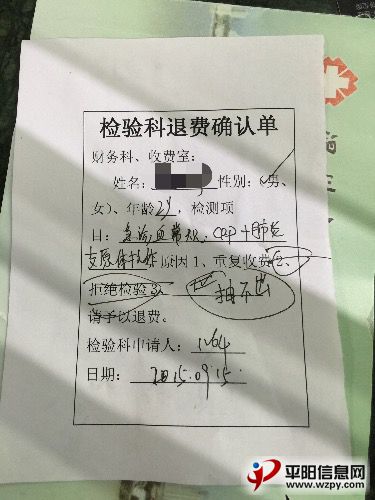 检验科退费确认单
财务科、收费室:
姓名: 性别:(男、
女)、年龄2岁,检测项
目:急诊血常规、CRP+肺炎
支原体抗体 原因1、重复收费2、
拒绝检验3、 抽不出
请予以退费。
检验科申请人: 1264
日期: 2015.09.15
平阳信息网
www.wzpy.com